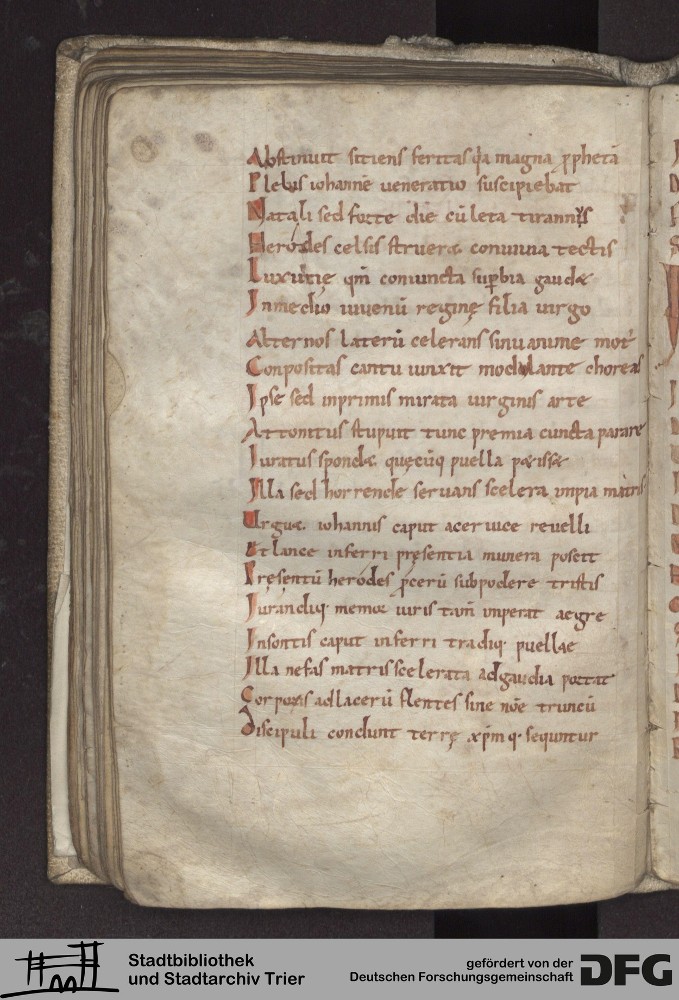 Abstinuit sitiens feritas q̇a magna ꝓphetā
Plebis iohannē ueneratio suscipiebat
Natali sed forte die cū leta tirannis
Herodes celsis strueræ conuiuia tectis
Luxurię qm̄ coniuncta suꝑbia gaudæ
In medio iuuenū reginę filia uirgo
Alternos laterū celerans sinuamine mot᾽
Conpositas cantu iunxit modulante choreas
Ipse sed inprimis mirata uirginis arte
Attonitus stupuit tunc premia cuncta parare
Iuratus spondæ quęcūq puella pæissæ
Illa sed horrende seruans scelera impia matris
Urguæ iohannis caput a ceruice reuelli
Et lance inferri pręsentia munera poscit
Presentū herodes ꝓcerū subpodere tristis
Iurandiq; memor uiris tam̄ imperat aegre
Insontis caput inferri tradiq; puellae
Illa nefas matris scelerata ad gaudia portat
Corporis ad lacerū flentes sine nōe truncū
Discipuli condunt terrę xp̄m q; sequntur
Stadtbibliothek
und Stadtarchiv Trier
gefördert von der
Deutschen Forschungsgemeinschaft
DFG